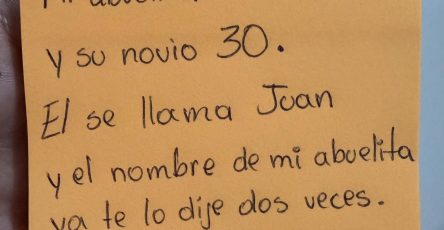 y su novio 30.
El se llama Juan
y el nombre de mi abuelita
ya te lo dije dos veces.